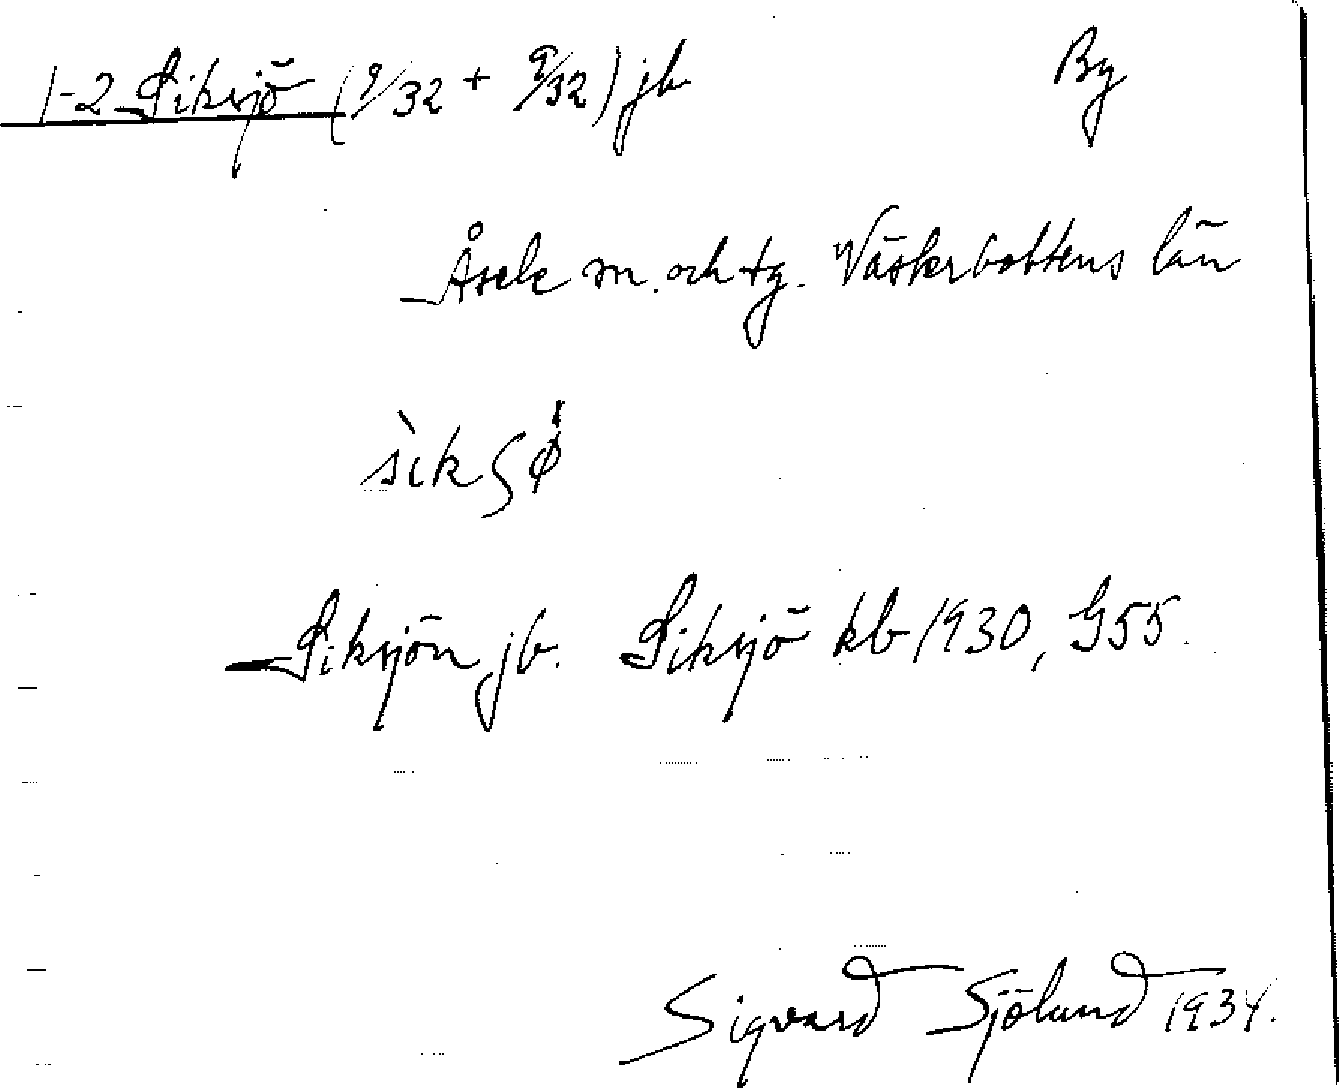 1-2 Siksjö (9/32 + 9/32) jb By
Åsele sn. och tg. Västerbottens län
sìkʃø̀
Siksjön jb. Siksjö kb 1930, G55.
Sigvard Sjölund 1934.